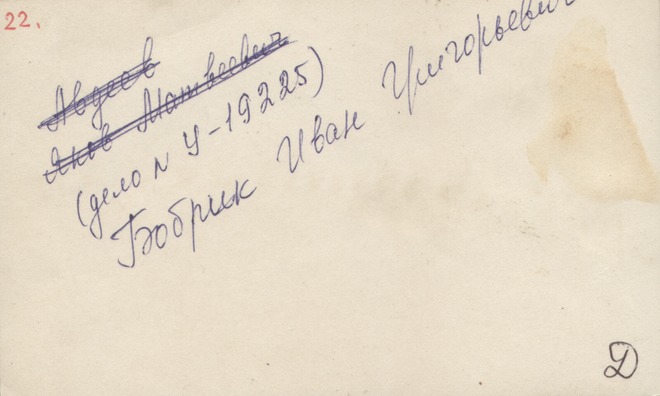 22.
Авдеев
Яков Матвеевич
(дело N У-19225)
Бобрик Иван Григорьевич
Д